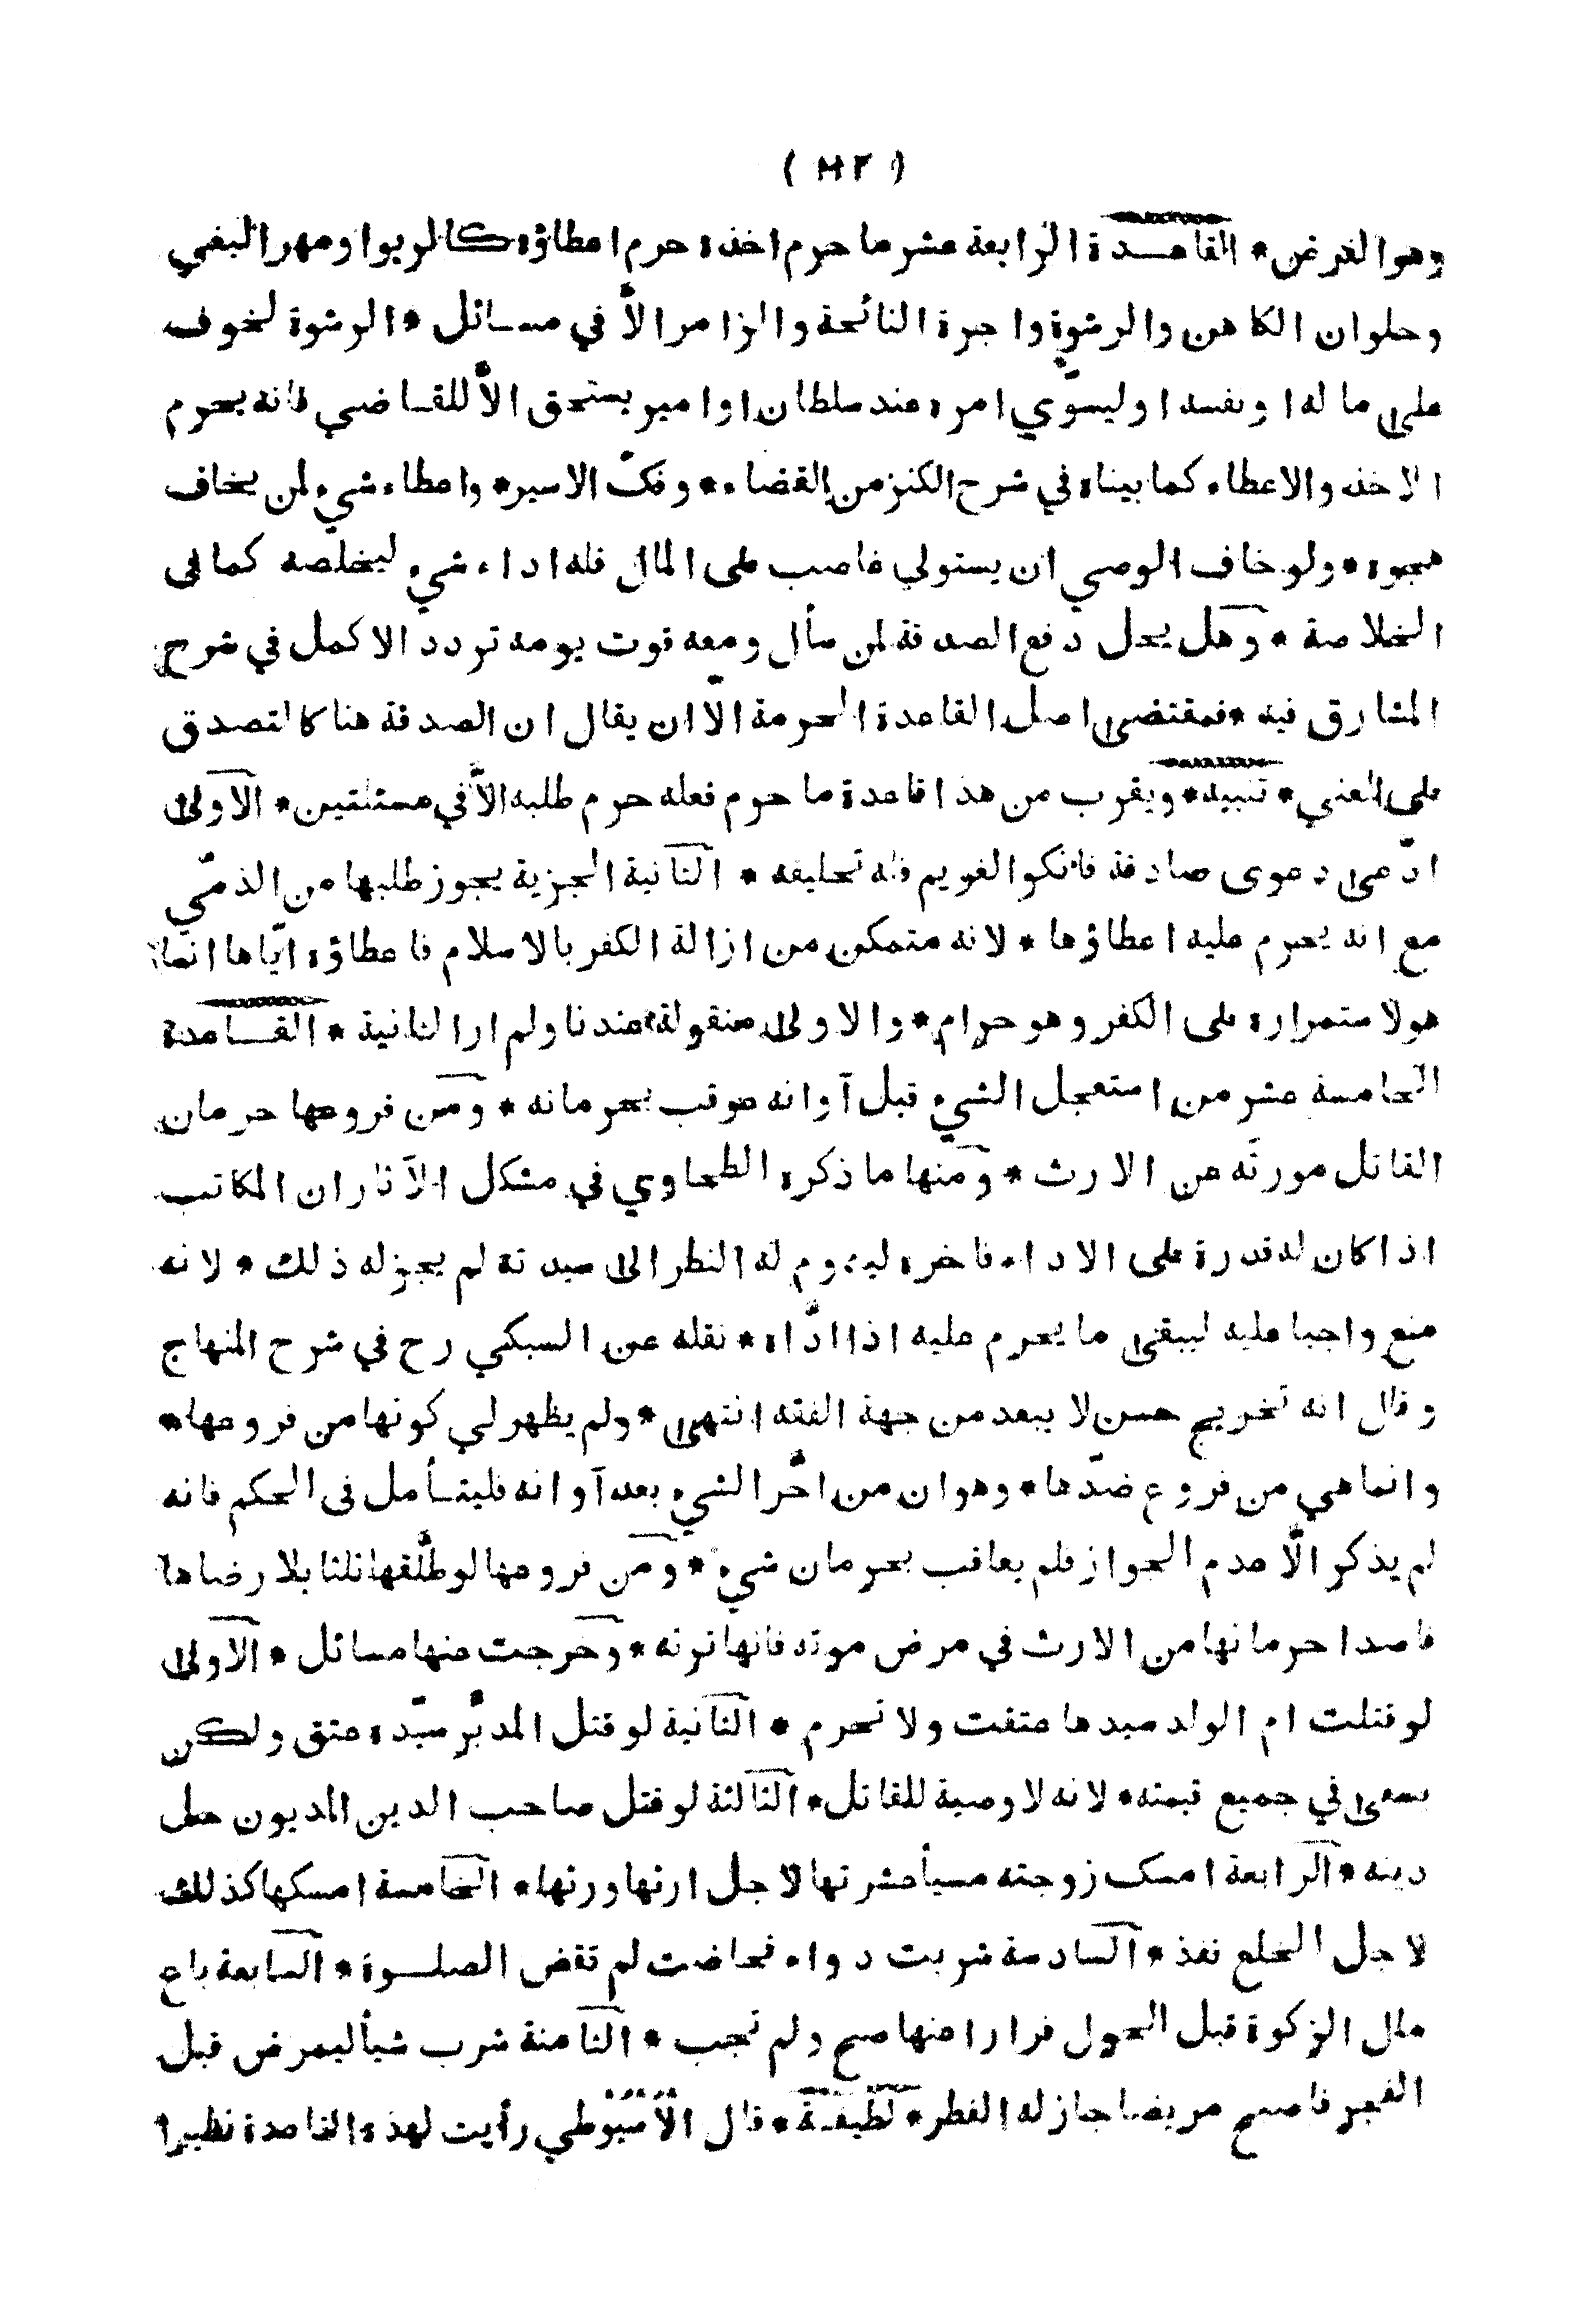 وهو الغرض * القاعدة الرابعة عشر ما حرم اخذه حرم اعطاؤه كالربوا ومهر البغي
وحلوان الكاهن والرشوة واجرة النائحة والزامر الاّ في مسائل * الرشوة لخوف
على ماله او نفسه او ليسوّي امره عند سلطان او امير يستحق الاّ للقاضي فانه يحرم
الاخذ والاعطاء كما بيناه في شرح الكنز من القضاء * وفكّ الاسير * واعطاء شيء لمن يخاف
هجوه * ولو خاف الوصي ان يستولي غاصب على المال فله اداء شيء ليخلصه كما فى
الخلاصة * وهل يحل دفع الصدقة لمن سأل ومعه قوت يومه تردد الاكمل في شرح
المشارق فيه * فمقتضى اصل القاعدة الحرمة الاّ ان يقال ان الصدقة هنا كالتصدق
على الغني * تنبيه * ويقرب من هذا قاعدة ما حرم فعله حرم طلبه الاّ في مسئلتين * الاولى
ادّعى دعوى صادقة فانكر الغريم فله تحليفه * الثانية الجزية يجوز طلبها من الذمّي
مع انه يحرم عليه اعطاؤها * لانه متمكن من ازالة الكفر بالاسلام فاعطاؤه ايّاها انما
هو لاستمراره على الكفر وهو حرام * والاولى منقولة عندنا ولم ار الثانية * القاعدة
الخامسة عشر من استعجل الشيء قبل آوانه عوقب بحرمانه * ومن فروعها حرمان
القاتل مورثه عن الارث * ومنها ما ذكره الطحاوي في مشكل الآثار ان المكاتب
اذا كان له قدرة على الاداء فاخره ليدوم له النظر الى سيدته لم يجز له ذلك * لانه
منع واجبا عليه ليبقى ما يحرم عليه اذا ادّاه * نقله عن السبكي رح في شرح المنهاج
وقال انه تخريج حسن لا يبعد من جهة الفقه انتهى * ولم يظهر لي كونها من فروعها *
وانما هي من فروع ضدّها * وهو ان من اخّر الشيء بعد آوانه فليتأمل فى الحكم فانه
لم يذكر الاّ عدم الجواز فلم يعاقب بحرمان شيء * ومن فروعها لو طلّقها ثلثا بلا رضاها
قاصدا حرمانها من الارث في مرض موته فانها ترثه * وخرجت عنها مسائل * الاولى
لو قتلت ام الولد سيدها عتقت ولا تحرم * الثانية لو قتل المدبّر سيّده عتق ولكن
يسعى في جميع قيمته * لانه لا وصية للقاتل * الثالثة لو قتل صاحب الدين المديون حل
دينه * الرابعة امسك زوجته مسيأ عشرتها لاجل ارثها ورثها * الخامسة امسكها كذلك
لاجل الخلع نفذ * السادسة شربت دواء فحاضت لم تقض الصلوة * السابعة باع
مال الزكوة قبل الحول فرارا عنها صح ولم تجب * الثامنة شرب شيأ ليمرض قبل
الفجر فاصبح مريضا جاز له الفطر * لطيفة * قال الاسيوطي رأيت لهذه القاعدة نظيرا